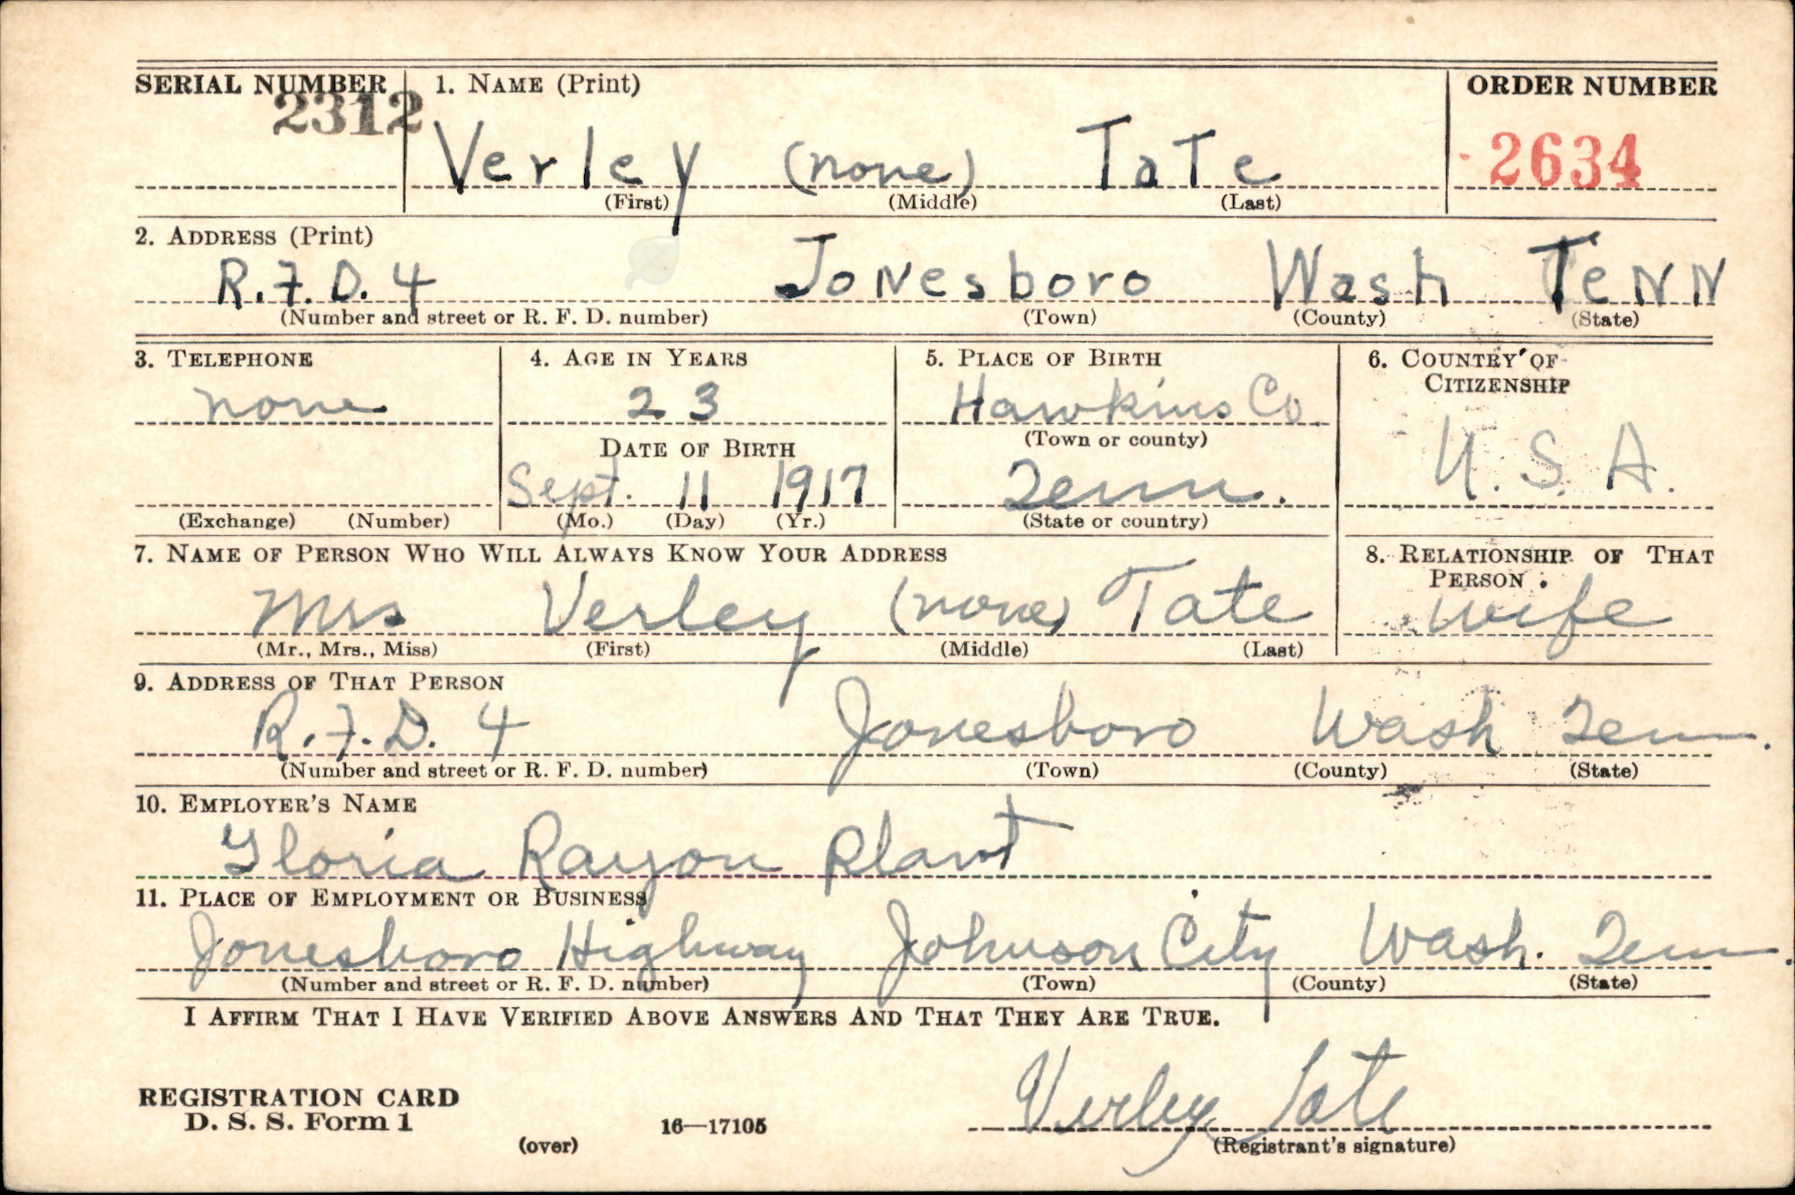 SERIAL NUMBER 1. NAME (Print) ORDER NUMBER
2312 Verley (none) Tate 2634
(First) (Middle) (Last)
2. ADDRESS (Print)
R.F.D. 4 Jonesboro Wash TeNN
(Number and street or R. F. D. number) (Town) (County) (State)
3. TELEPHONE 4. AGE IN YEARS 5. PLACE OF BIRTH 6. COUNTRY OF
CITIZENSHIP
none 23 Hawkins Co.
DATE OF BIRTH (Town or county)
Sept. 11 1917 Tenn. U. S. A.
(Exchange) (Number) (Mo.) (Day) (Yr.) (State or country)
7. NAME OF PERSON WHO WILL ALWAYS KNOW YOUR ADDRESS 8. RELATIONSHIP OF THAT
PERSON
Mrs Verley (none) Tate wife
(Mr., Mrs., Miss) (First) (Middle) (Last)
9. ADDRESS OF THAT PERSON
R.F.D. 4 Jonesboro Wash Tenn.
(Number and street or R. F. D. number) (Town) (County) (State)
10. EMPLOYER'S NAME
Gloria Rayon plant
11. PLACE OF EMPLOYMENT OR BUSINESS
Jonesboro Highway Johnson City Wash. Tenn.
(Number and street or R. F. D. number) (Town) (County) (State)
I AFFIRM THAT I HAVE VERIFIED ABOVE ANSWERS AND THAT THEY ARE TRUE.
REGISTRATION CARD
D. S. S. Form 1 16—17105 Verley Tate
(over) (Registrant's signature)